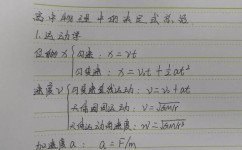 高中物理中的决定式总结
1.运动学
位移x { 匀速: x = vt
匀变速: x = v₀t + ½at²
速度v { 匀变速直线运动: v = v₀ + at
天体圆周运动: v = √GM/r
天体运动角速度: w = √GM/r³
加速度a: a = F/m